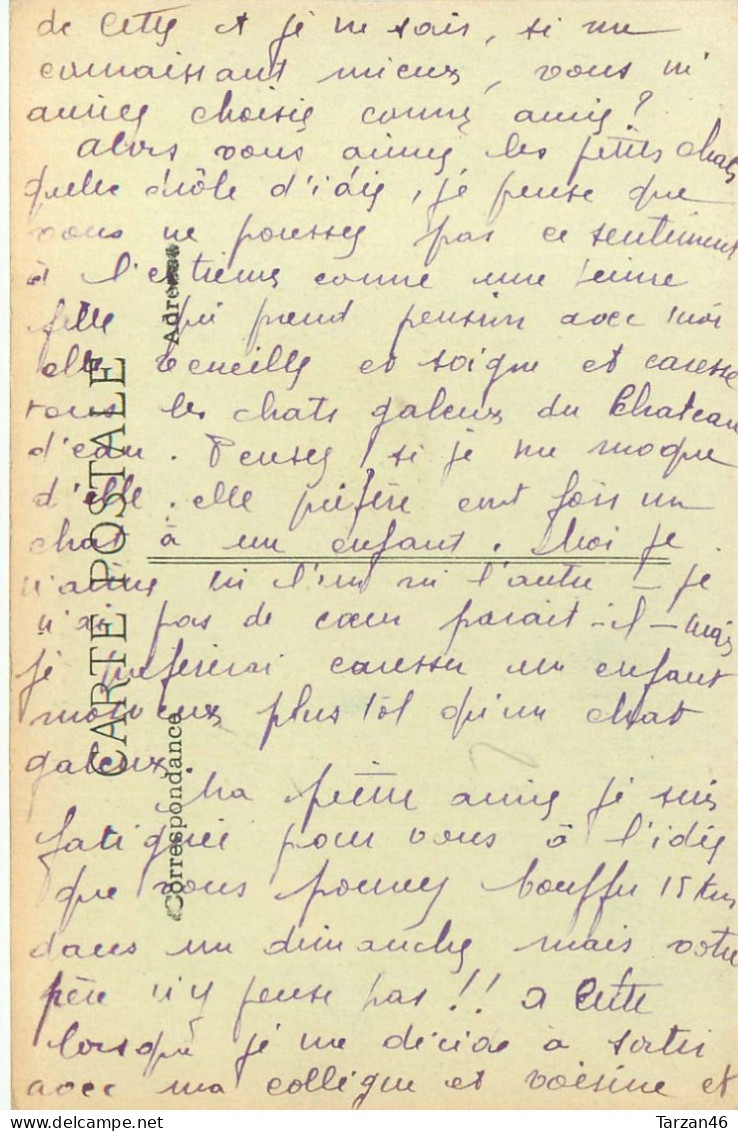 de Cette et je ne sais, si me
connaissant mieux, vous m'
auriez choisie comme amie?
Alors vous aimez les petits chats
quelle drôle d'idée, je pense que
vous ne poussez pas ce sentiment
à l'extrême comme une jeune
fille qui prend pension avec moi
elle recueille et soigne et caresse
tous les chats galeux du Chateau
d'eau. Pensez si je me moque
d'elle. elle préfère cent fois un
chat à un enfant. Moi je
n'aime ni l'un ni l'autre – je
n'ai pas de cœur parait-il – mais
je préfèrerai caresser un enfant
morveux plus tôt qu'un chat
galeux.
Ma petite amie je suis
fatiguée pour vous à l'idée
que vous pouvez bouffer 15 Km
dans un dimanche mais votre
père n'y pense pas!! A Cette
lorsque je me décide à sortir
avec ma collègue et voisine et
CARTE POSTALE
Correspondance
Adresse
Tarzan46